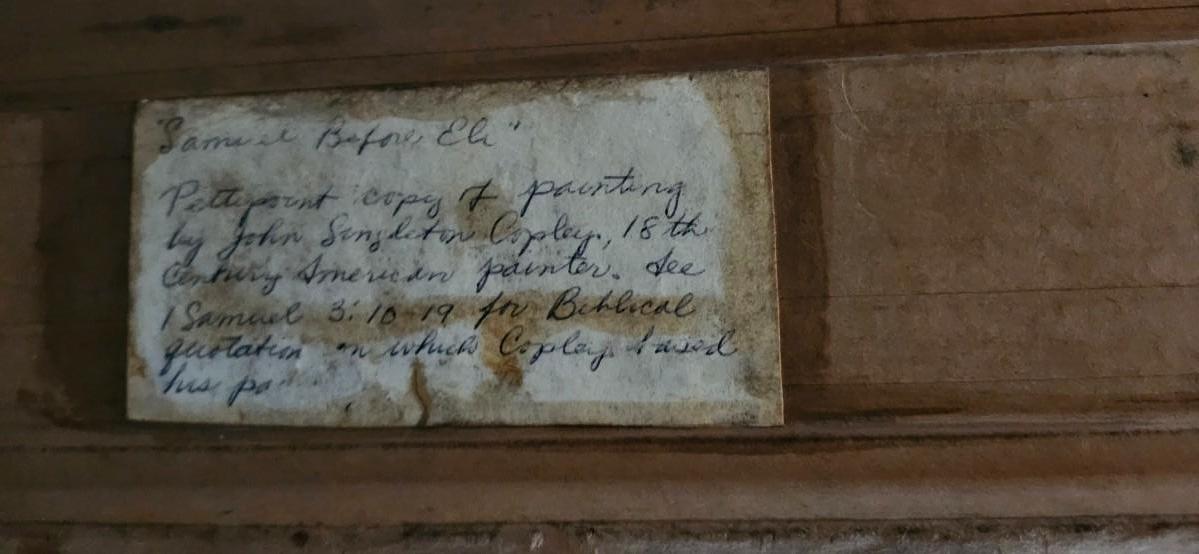 "Samuel Before Eli"
Pettipoint copy of painting
by John Singleton Copley, 18th
Century American painter. See
1 Samuel 3:10-19 for Biblical
quotation on which Copley based
his